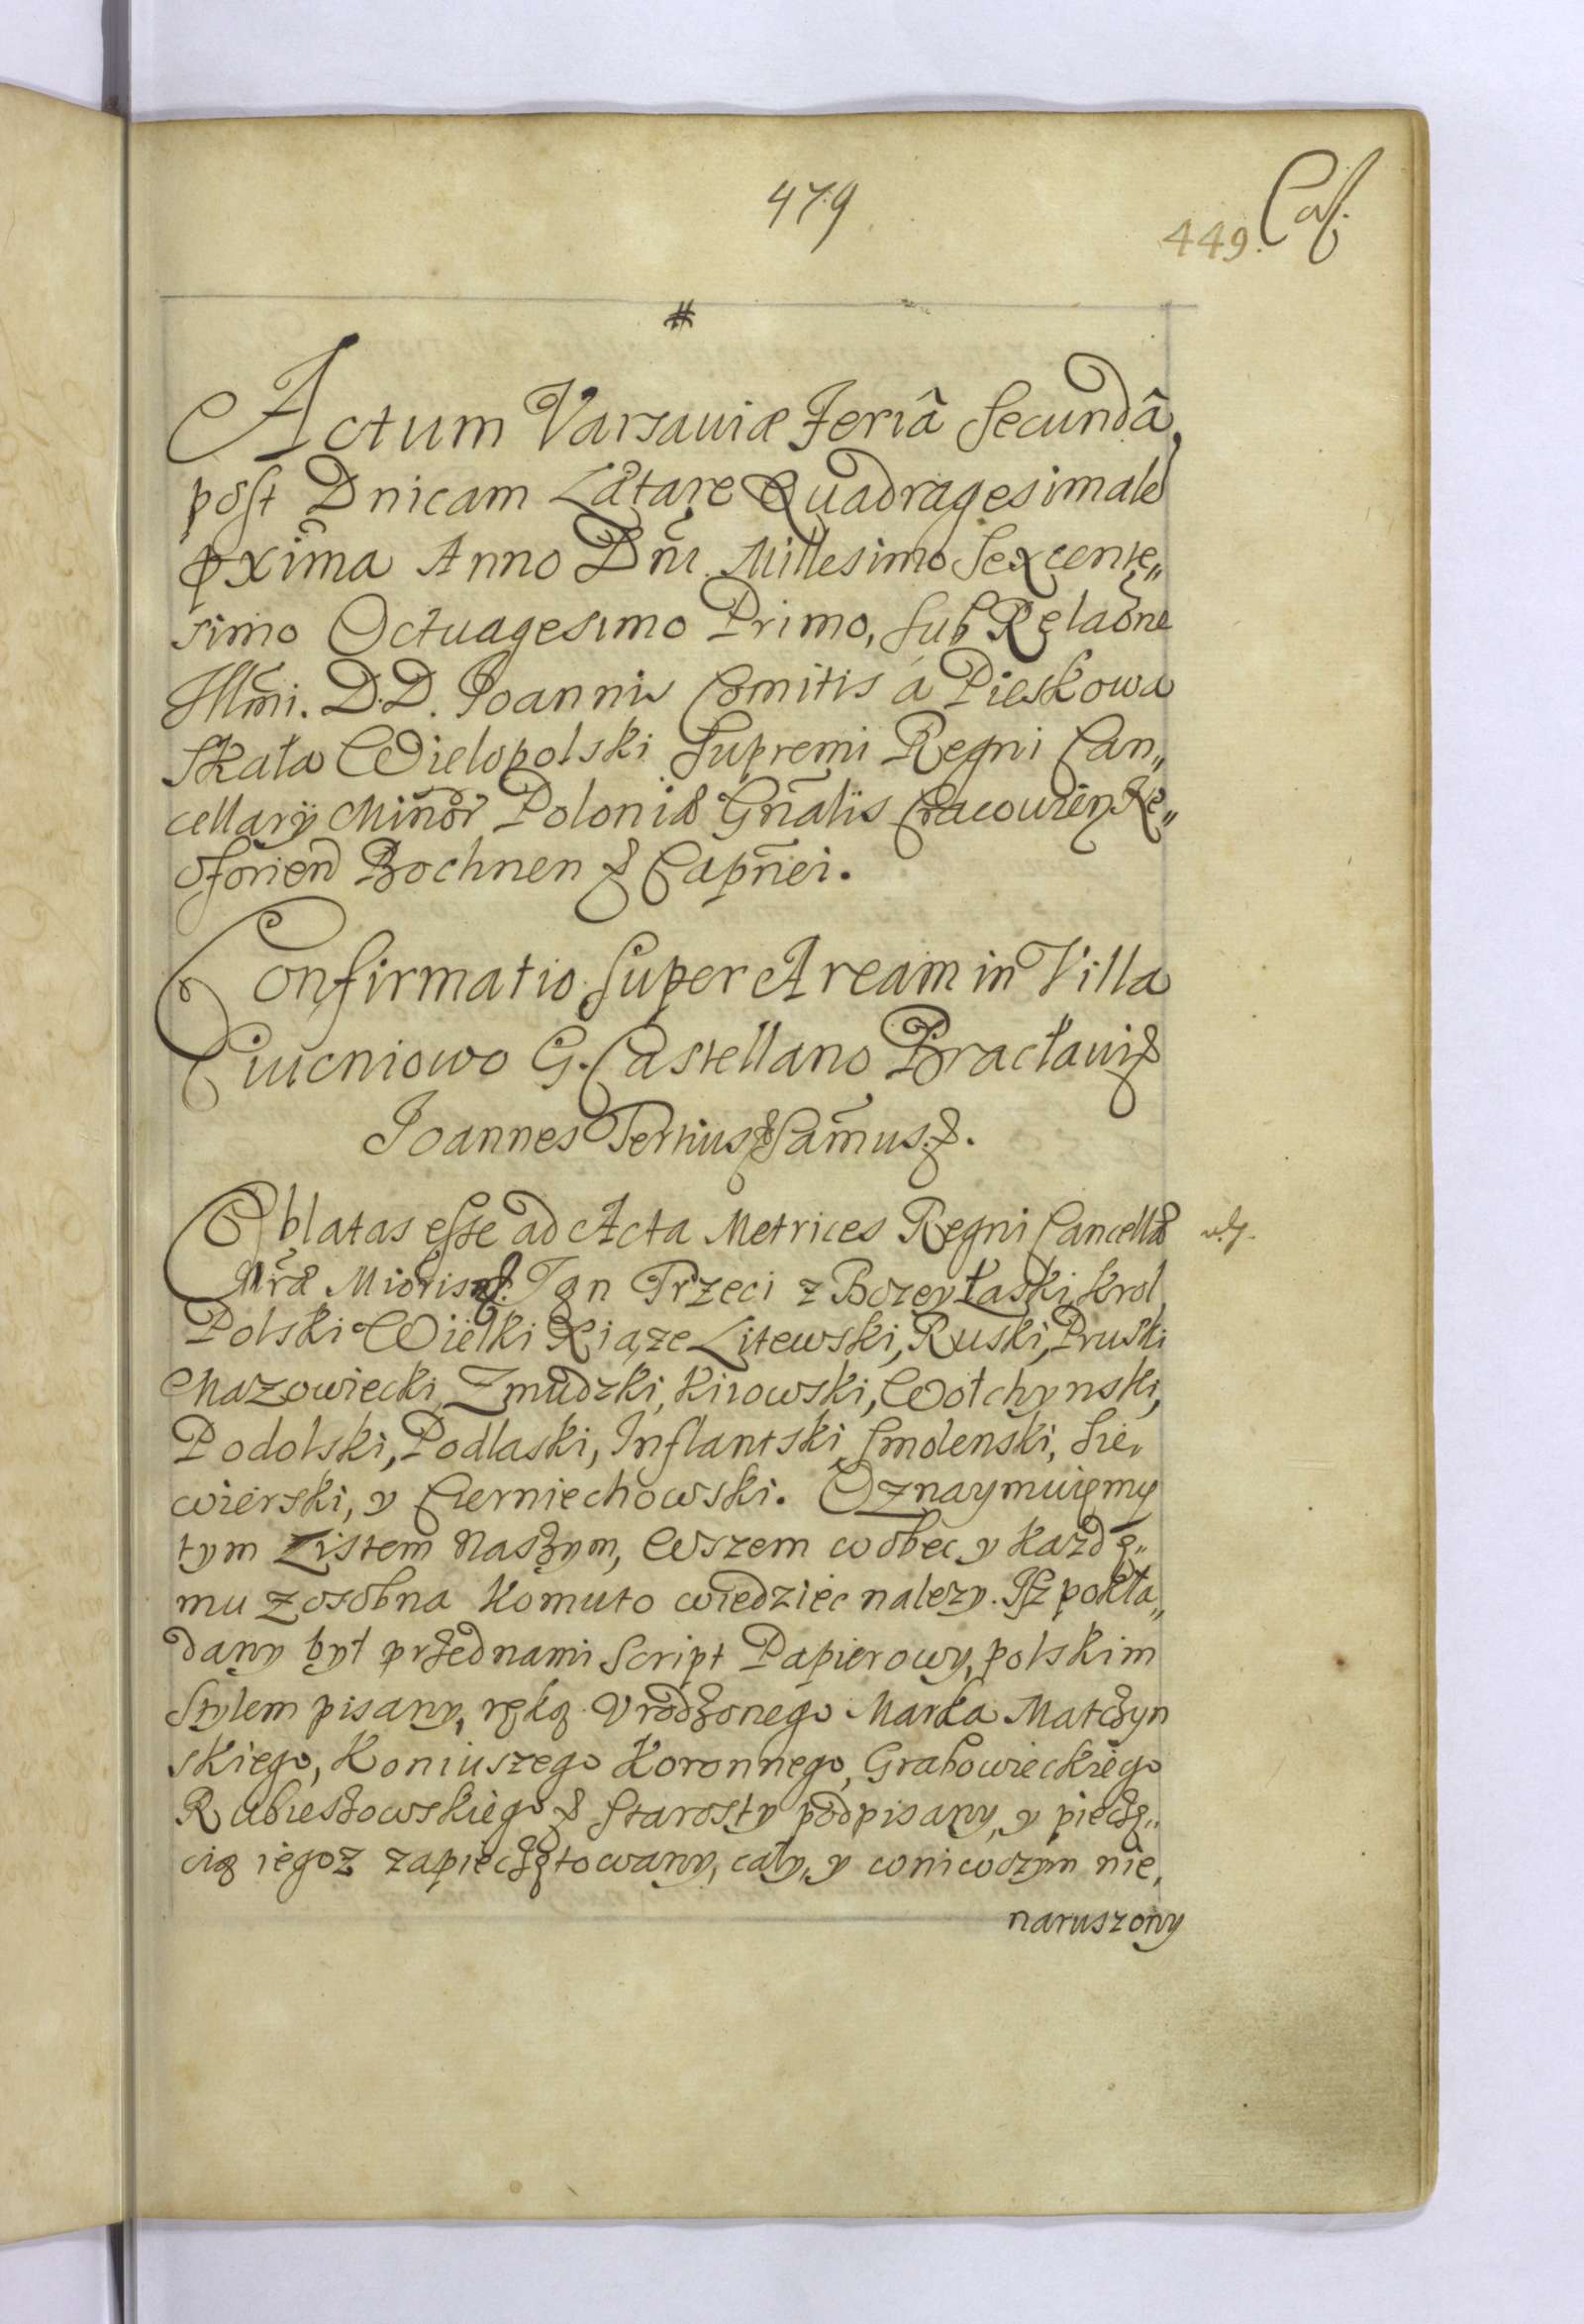 479
449.
#
Actum Varsaviæ Feriâ Secundâ,
post Dnicam Lætare Quadragesimale
pxima Anno Dni. Millesimo Sexcente„
simo Octuagesimo Primo, sub Relaõne
Illmi. D.D. Joannis Comitis á Pieskowa
Skała Wielopolski Supremi Regni Can„
cellarÿ Minor Poloniæ Gñalis Cracovien Ne„
oforien Bochnen & Capnei.
Confirmatio super Aream in Villa
Ciucniowo G. Castellano Bracłavi&
Joannes Tertius & Samus. &.
Oblatas esse ad Acta Metrices Regni Cancellæ
Nræ Mioris Jan Trzeci z Bozey Łaski, krol
Polski Wielki Xiąze Litewski, Ruski, Pruski
Mazowiecki, Zmudzki, Kiiowski, Wołchynski,
Podolski, Podlaski, Inflantski, Smolenski, Sie,
wierski, y Czerniechowski. Oznaymuięmy
tym Listem Naszym, Wszem wobec y kazdę„
mu zosobna komuto wiedziec nalezy. Isz pokła„
dany był przednami Script Papierowy, polskim
Stylem pisany, ręką Vrodzonego Marka Matczyn
skiego, Koniuszego Koronnego, Grabowieckiego
Rubieszowskiego & Starosty podpisany, y pieczę„
cią iegoz zapieczętowany, cały, y wniwczym nie,
naruszony